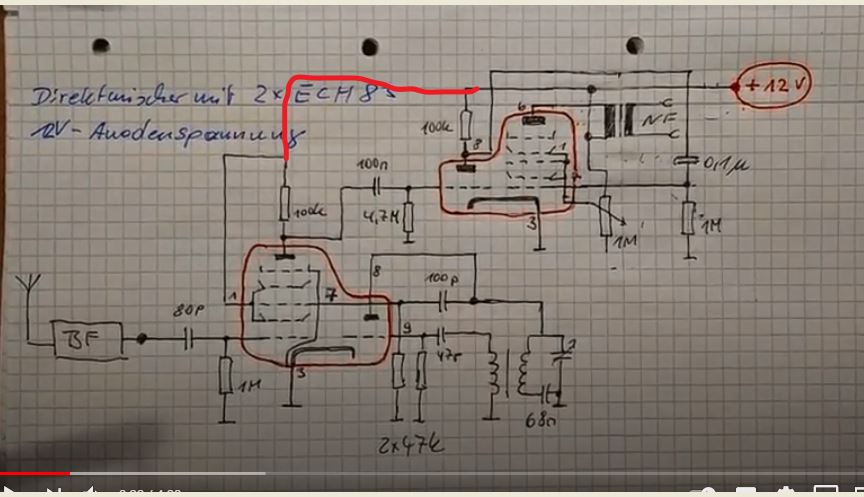 Direktmischer mit 2x ECH 83
12V-Anodenspannung
+12V
100k
8
6
1
7
3
NF
0,1µ
1M
1M
100n
4,7M
100k
8
100p
1
7
80p
9
3
BF
1M
47r
2x47k
68n